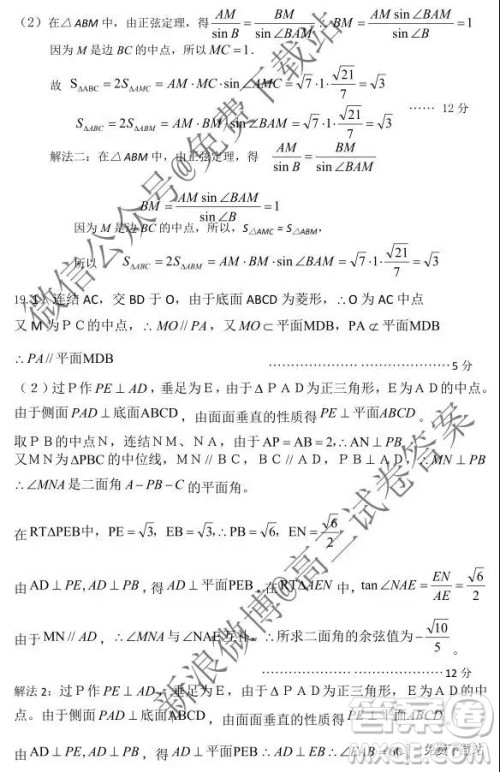 （2）在△ABM 中，由正弦定理，得 AM/sin B = BM/sin∠BAM，BM = AM sin∠BAM/sin∠B = 1
因为 M 是边 BC 的中点，所以 MC = 1.
故 S△ABC = 2S△AMC = AM·MC·sin∠AMC = √7·1·√21/7 = √3 …… 12 分
S△ABC = 2S△ABM = AM·BM·sin∠BAM = √7·1·√21/7 = √3
解法二：在△ABM 中，由正弦定理，得 AM/sin B = BM/sin∠BAM
BM = AM sin∠BAM/sin∠B = 1
因为 M 是边 BC 的中点，所以，S△AMC = S△ABM，
所以 S△ABC = 2S△ABM = AM·BM·sin∠BAM = √7·1·√21/7 = √3
19.1）连结 AC，交 BD 于 O，由于底面 ABCD 为菱形，∴O 为 AC 中点
又 M 为ＰＣ的中点，∴MO//PA，又MO⊂平面MDB，PA⊄平面MDB
∴PA//平面MDB
……………………………… 5 分
（２）过Ｐ作 PE⊥AD，垂足为Ｅ，由于ΔＰＡＤ为正三角形，Ｅ为ＡＤ的中点。
由于侧面 PAD⊥底面ABCD，由面面垂直的性质得 PE⊥平面ABCD。
取ＰＢ的中点Ｎ，连结ＮＭ、ＮＡ，由于AP=AB=2，∴AN⊥PB
又ＭＮ为ΔPBC 的中位线，ＭＮ//ＢＣ，ＢＣ//ＡＤ，ＰＢ⊥ＡＤ，∴MN⊥PB
∴∠MNA是二面角 A−PB−C 的平面角。
在RTΔPEB中，PE=√3，EB=√3，∴PB=√6，EN=√6/2
由 AD⊥PE,AD⊥PB，得 AD⊥平面PEB，在RTΔAEN 中，tan∠NAE=EN/AE=√6/2
由于MN//AD，∴∠MNA与∠NAE互补。∴所求二面角的余弦值为−√10/5。
……………………………… 12 分
解法 2：过Ｐ作 PE⊥AD，垂足为Ｅ，由于ΔＰＡＤ为正三角形，Ｅ为ＡＤ的中
点。由于侧面 PAD⊥底面ABCD，由面面垂直的性质得 PE⊥平面ABCD
由 AD⊥PE,AD⊥PB，得 AD⊥平面PEB∴AD⊥EB∴∠EAB=60
微信公众号@免费下载站
新浪微博@高三试卷答案